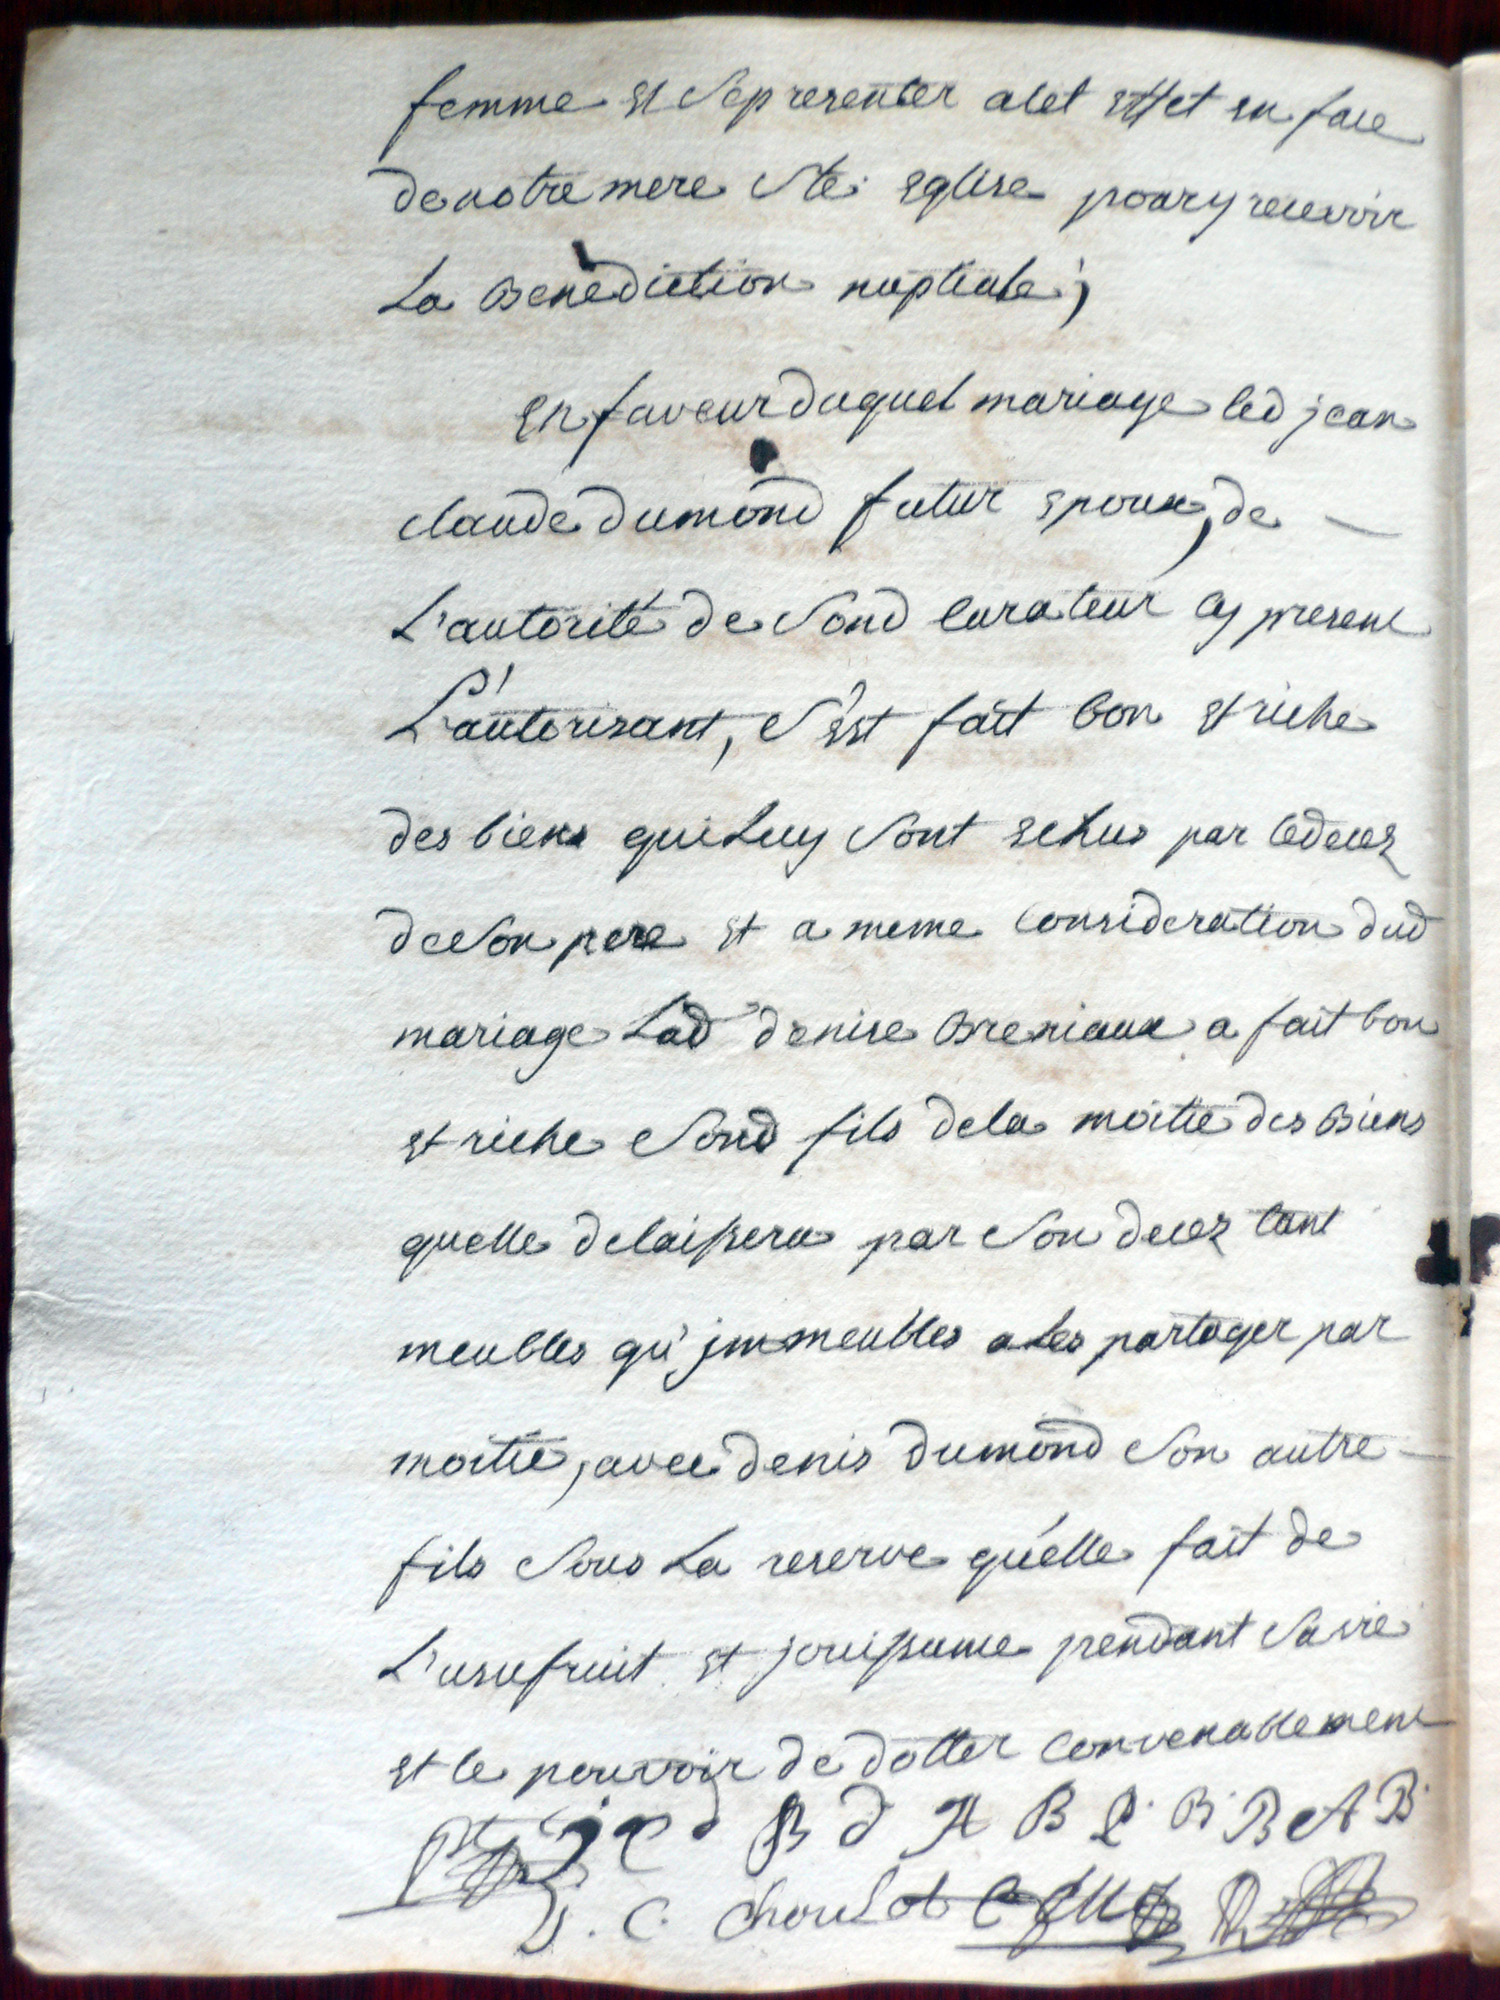 femme et Se presenter a cet effet en face
de notre mere Ste. Eglise pour y recevoir
La Benediction nuptiale;
En faveur duquel mariage led jean
claude dumond futur epoux, de
L'autorité de Sond curateur cy present
L'autorisant, S'est fait bon et riche
des biens qui Luy Sont echus par le decez
de Son pere et a meme consideration dud
mariage Lad denise Breniaux a fait bon
et riche Sond fils de la moitie des Biens
quelle delaissera par Son decez tant
meubles qu'jmmeubles a Les partager par
moitie, avec denis dumond Son autre
fils Sous La reserve qu'elle fait de
L'usufruit et jouissance pendant Sa vie
et le pouvoir de dotter convenablement
j C d B d A B P. B. B A B.
J. C. Choulot